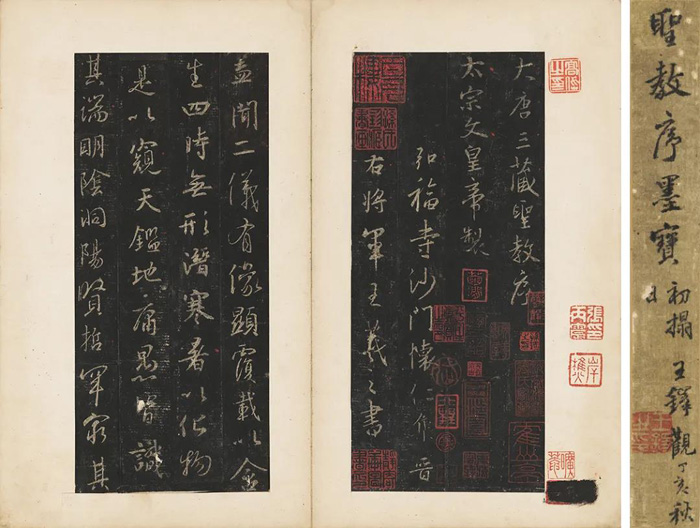 聖教序墨寶
初搨
王鐸觀丁亥秋
日
大唐三藏聖教序
太宗文皇帝製
弘福寺沙門懷仁集晉
右將軍王羲之書
盖聞二儀有像顯覆載以含
生四時無形潛寒暑以化物
是以窺天鑑地庸愚皆識
其端明陰洞陽賢哲罕窮其